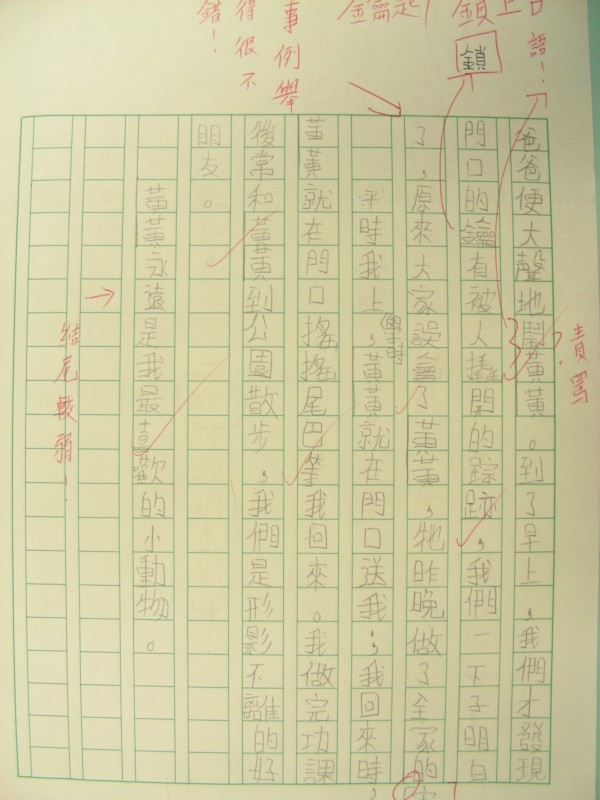 口語!
鎖
事例舉
得很不
錯!
爸爸便大聲地鬧黃黃。到了早上,我們才發現
責罵
門口的鑰有被人撬開的踪跡,我們一下子明白
了,原來大家誤會了黃黃,牠昨晚做了全家的
平時我上學時,黃黃就在門口送我;我回來時,
黃黃就在門口搖搖尾巴等我回來。我做完功課
後常和黃黃到公園散步,我們是形影不離的好
朋友。
黃黃永遠是我最喜歡的小動物。
結尾較弱!